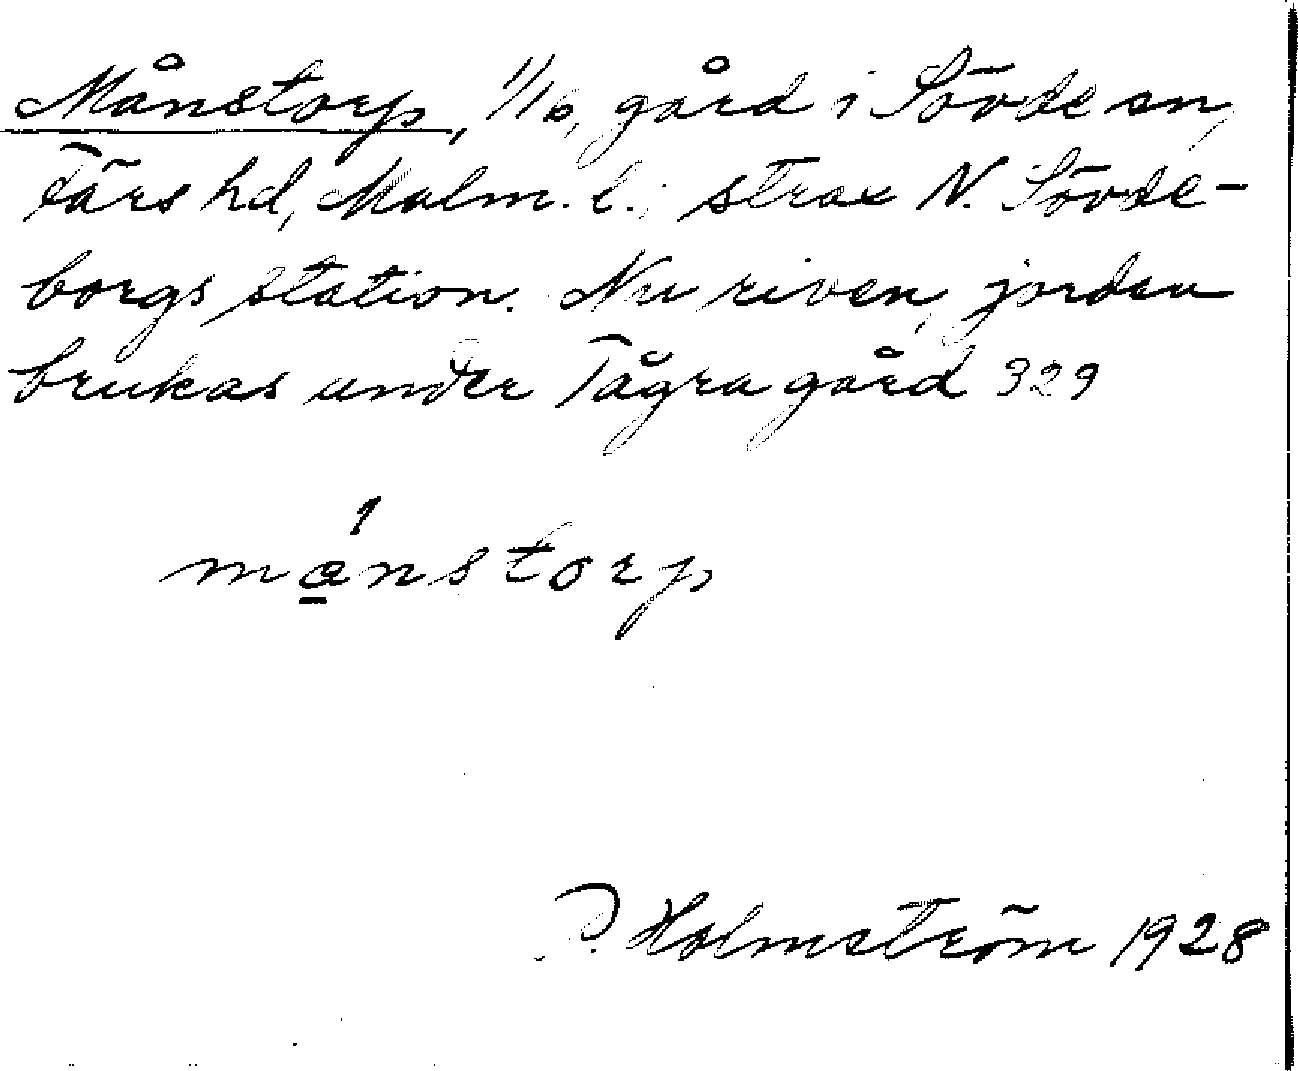 Månstorp, 1/16, gård i Sövde sn,
Färs hd, Malm. l., strax N. Sövde-
borgs station. Nu riven, jorden
brukas under Tågra gård 329
månstorp
P. Holmström 1928